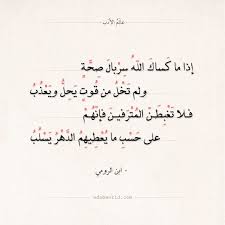 عالم الأدب
إذا ما كساك اللهُ سربالَ صِحَّةٍ
ولم تَخْلُ من قُوتٍ يَحِلُّ ويَعْذُبُ
فلا تَغْبِطَنَّ المُتْرفينَ فإنّهُمْ
على حَسْبِ ما يُعْطِيهِمُ الدَّهْرُ يَسْلُبُ
- ابن الرومي -
adabworld.com